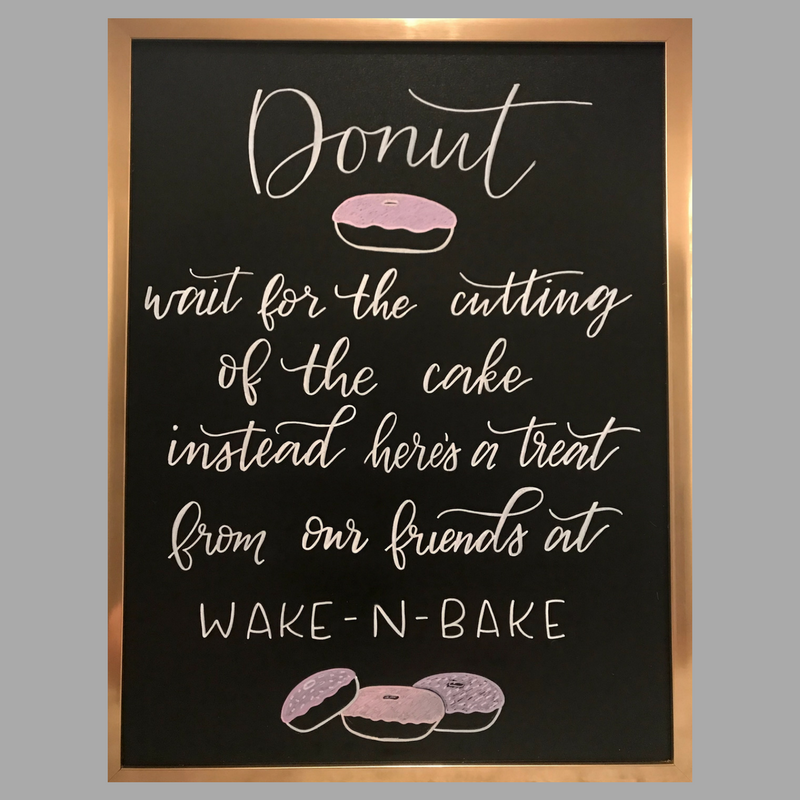 Donut
wait for the cutting
of the cake
instead here's a treat
from our friends at
WAKE-N-BAKE